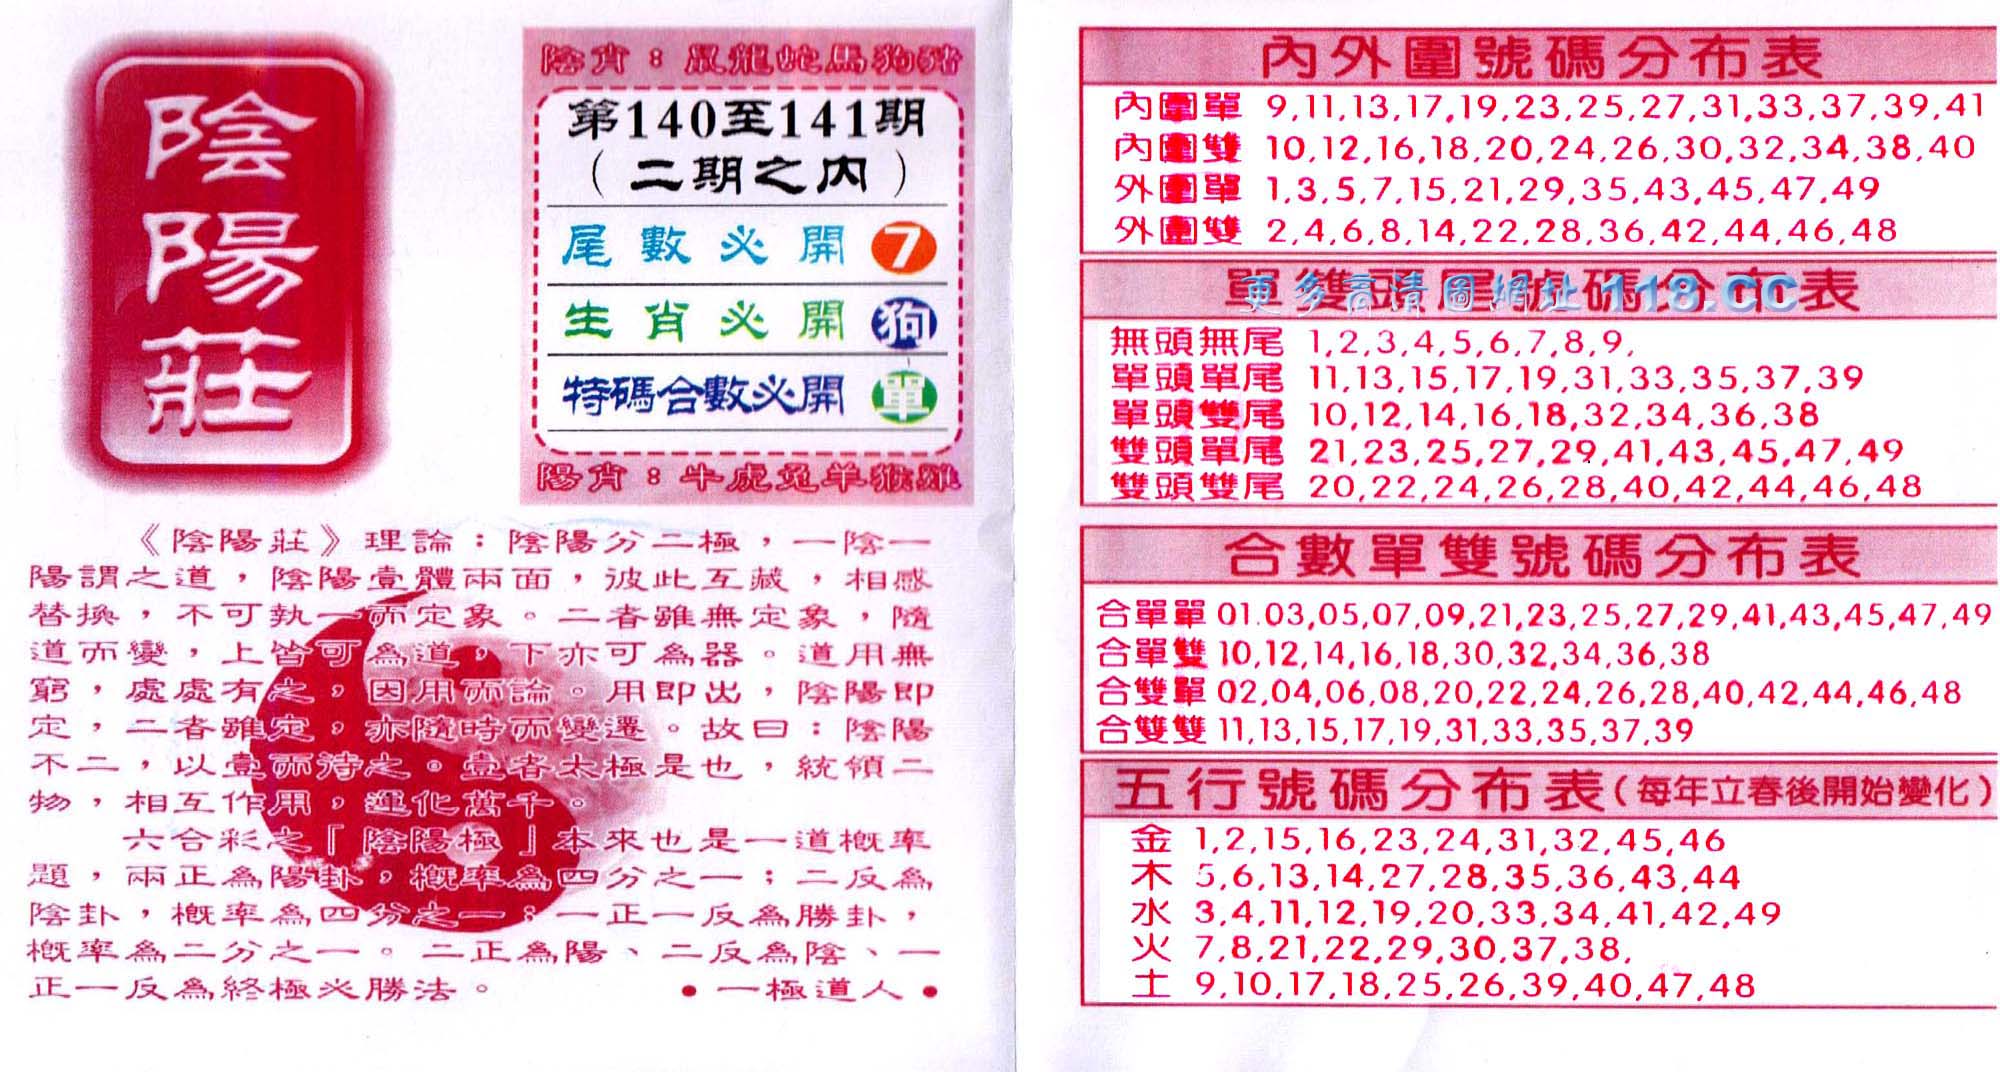 陰陽莊
陰肖：鼠龍蛇馬狗豬
第140至141期
（二期之內）
尾數必開 7
生肖必開 狗
特碼合數必開 單
陽肖：牛虎兔羊猴雞
《陰陽莊》理論：陰陽分二極，一陰一
陽謂之道，陰陽壹體兩面，彼此互藏，相感
替換，不可執一而定象。二者雖無定象，隨
道而變，上皆可為道，下亦可為器。道用無
窮，處處有之，因用而論。用即出，陰陽即
定，二者雖定，亦隨時而變遷。故曰：陰陽
不二，以壹而待之。壹者太極是也，統領二
物，相互作用，運化萬千。
六合彩之「陰陽極」本來也是一道概率
題，兩正為陽卦，概率為四分之一；二反為
陰卦，概率為四分之一；一正一反為勝卦，
概率為二分之一。二正為陽、二反為陰、一
正一反為終極必勝法。 •一極道人•
內外圍號碼分布表
內圍單 9,11,13,17,19,23,25,27,31,33,37,39,41
內圍雙 10,12,16,18,20,24,26,30,32,34,38,40
外圍單 1,3,5,7,15,21,29,35,43,45,47,49
外圍雙 2,4,6,8,14,22,28,36,42,44,46,48
單雙頭尾號碼分布表
更多高清圖網址118.CC
無頭無尾 1,2,3,4,5,6,7,8,9,
單頭單尾 11,13,15,17,19,31,33,35,37,39
單頭雙尾 10,12,14,16,18,32,34,36,38
雙頭單尾 21,23,25,27,29,41,43,45,47,49
雙頭雙尾 20,22,24,26,28,40,42,44,46,48
合數單雙號碼分布表
合單單 01.03,05,07,09,21,23,25,27,29,41,43,45,47,49
合單雙 10,12,14,16,18,30,32,34,36,38
合雙單 02,04,06,08,20,22,24,26,28,40,42,44,46,48
合雙雙 11,13,15,17,19,31,33,35,37,39
五行號碼分布表（每年立春後開始變化）
金 1,2,15,16,23,24,31,32,45,46
木 5,6,13,14,27,28,35,36,43,44
水 3,4,11,12,19,20,33,34,41,42,49
火 7,8,21,22,29,30,37,38,
土 9,10,17,18,25,26,39,40,47,48